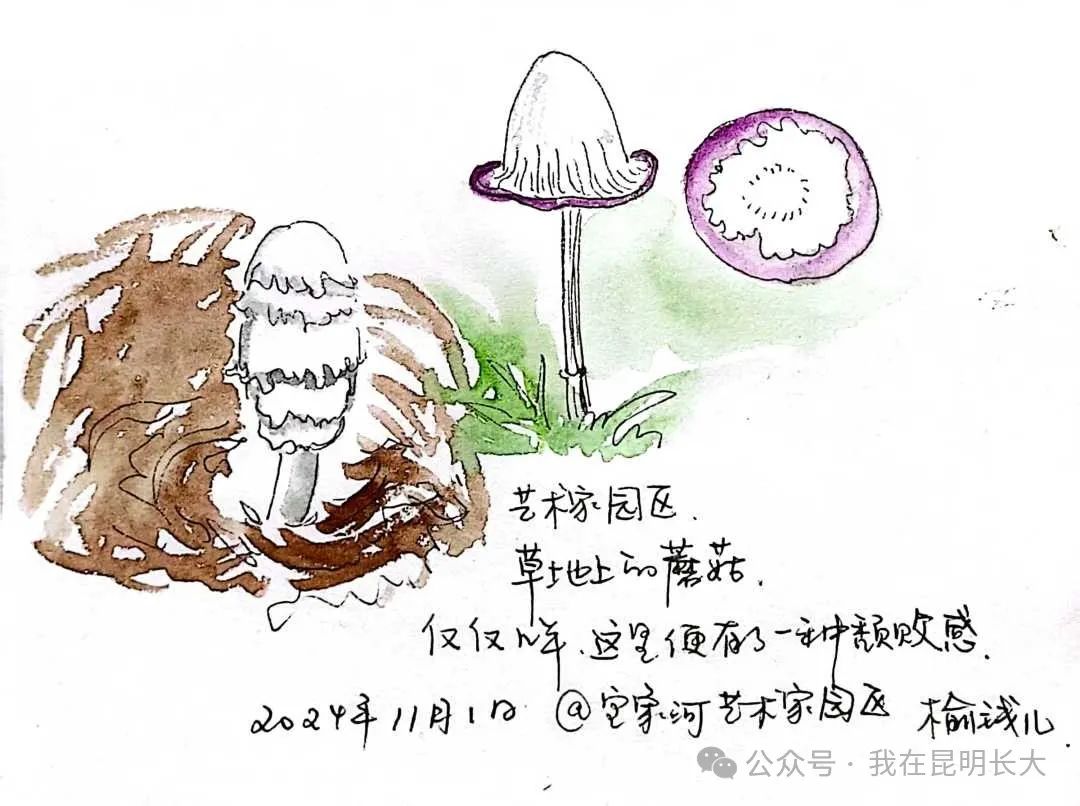 艺术家园区.
草地上的蘑菇.
仅仅几年.这里便有了一种颓败感.
2024年11月1日 @宝家河艺术家园区 榆钱儿
公众号·我在昆明长大